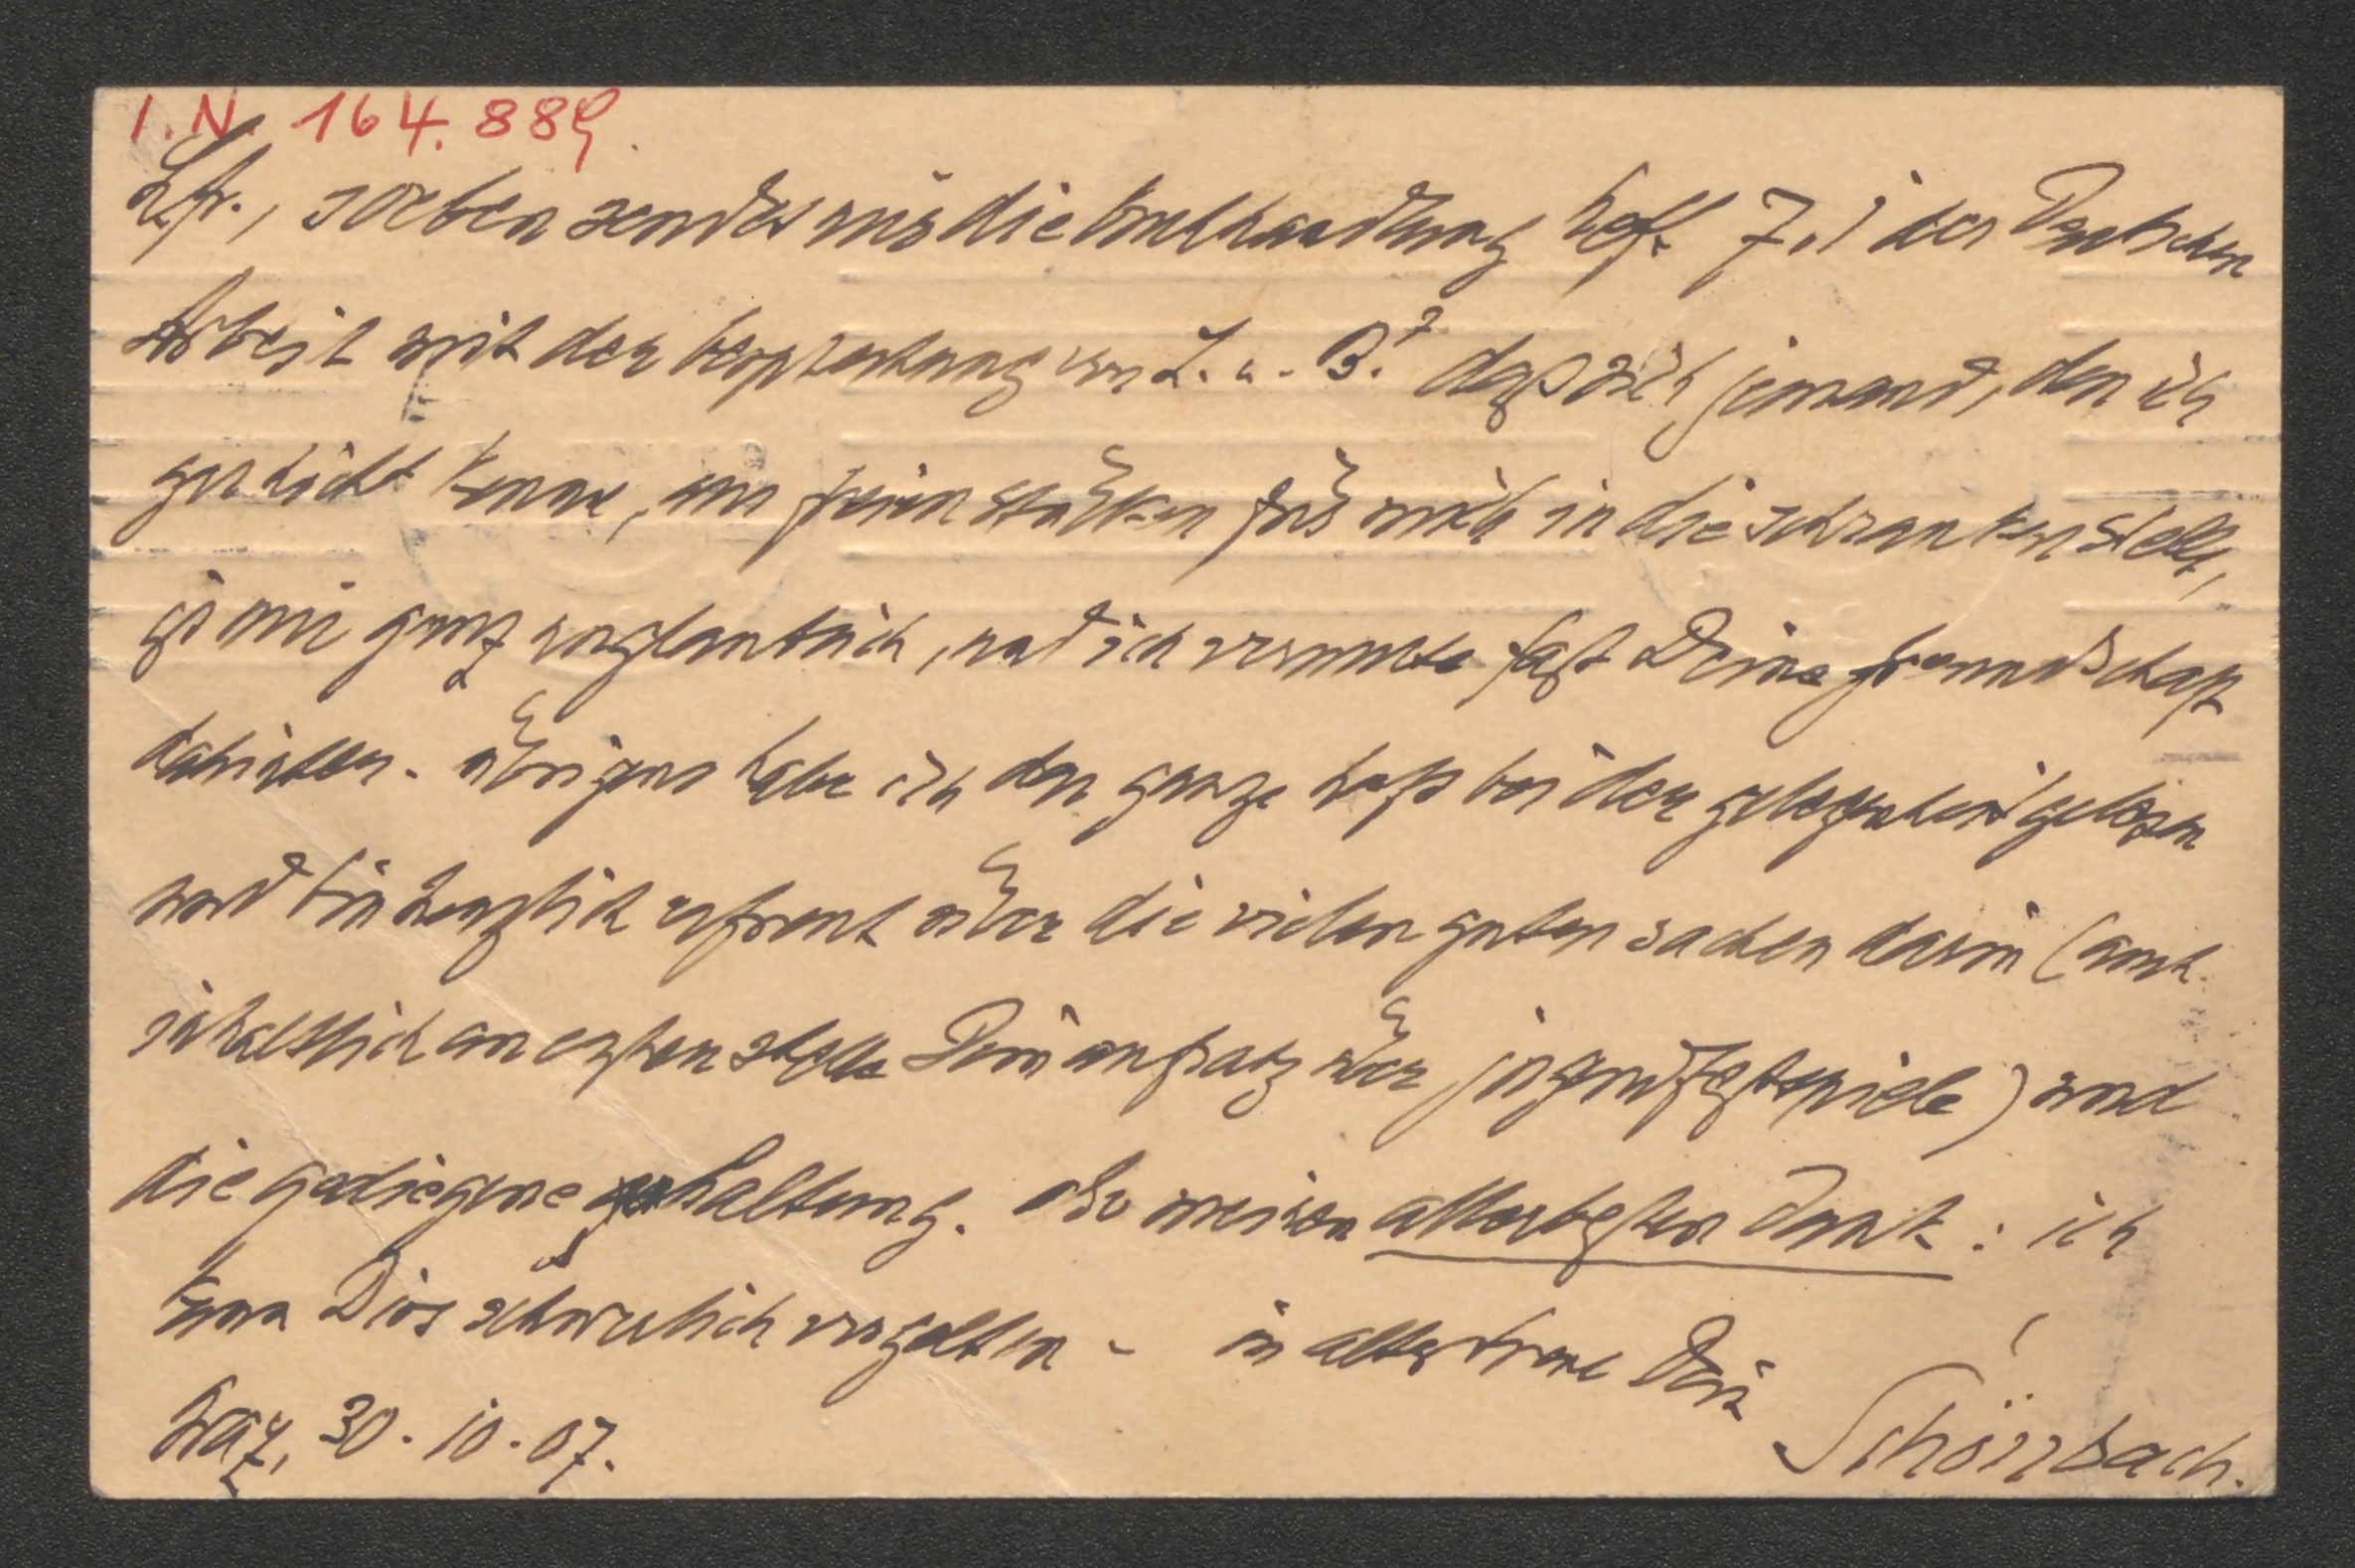 I.N. 164.889
L. fr., soeben sendet mir die buchhandlung heft 7,1 der Deutschen
Arbeit mit der besprechung von L. u. B.² daß sich jemand, den ich
gar nicht kenne, aus freien stücken für mich in die schranken stellt,
ist mir ganz unglaublich, und ich vermute fast Deine freundschaft
dahinter. übrigens habe ich das ganze heft bei der gelegenheit gelesen
und bin herzlich erfreut über die vielen guten sachen darin (auch
inhaltlich an erster stelle Dein aufsatz über jugendfestspiele) und
die gediegene haltung. also meinen allerbesten dank: ich
kann Dirs schwerlich vergelten - in alter treue Dein
Graz, 30.10.07. Schönbach.